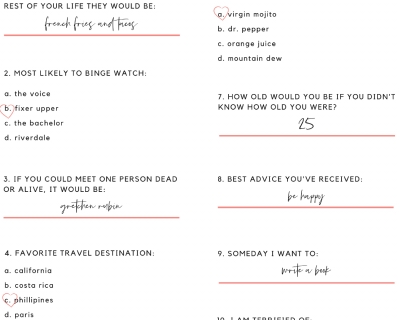 REST OF YOUR LIFE THEY WOULD BE:
french fries and tacos
2. MOST LIKELY TO BINGE WATCH:
a. the voice
b. fixer upper
c. the bachelor
d. riverdale
3. IF YOU COULD MEET ONE PERSON DEAD
OR ALIVE, IT WOULD BE:
gretchen rubin
4. FAVORITE TRAVEL DESTINATION:
a. california
b. costa rica
c. phillipines
d. paris
a. virgin mojito
b. dr. pepper
c. orange juice
d. mountain dew
7. HOW OLD WOULD YOU BE IF YOU DIDN'T
KNOW HOW OLD YOU WERE?
25
8. BEST ADVICE YOU'VE RECEIVED:
be happy
9. SOMEDAY I WANT TO:
write a book
10. I AM TERRIFIED OF: